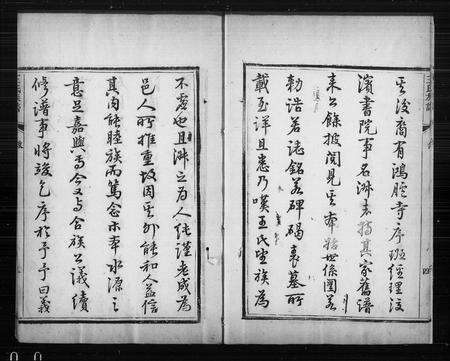 其後裔有鴻臚寺序班經理汶
濱書院事名淋者持其家舊譜
來公餘披閱見其奉始世係圖若
勅誥若誌銘若碑碣表墓所
載至詳且悉乃嘆王氏望族為
不虛也且淋之為人純謹老成為
邑人所推重故因其外能和人益信
其內能睦族而篤念木本水源之
意足嘉與焉今又與合族公議續
修譜事將竣乞序於予予曰義